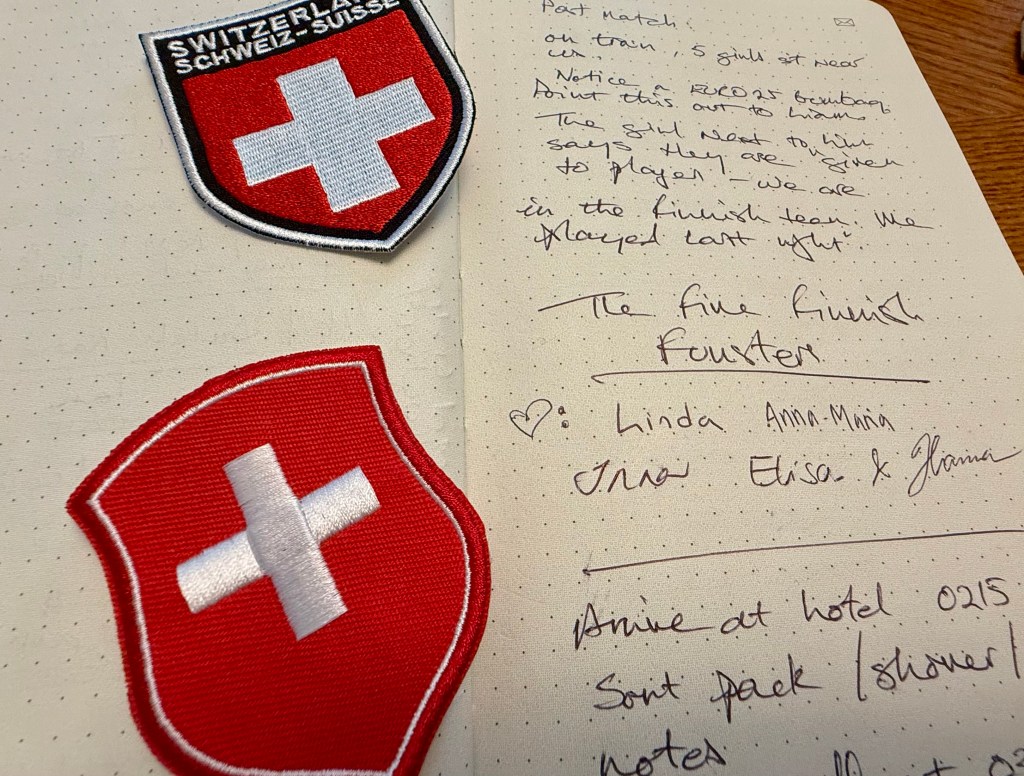 SWITZERLA
SCHWEIZ-SUISSE
Post Match:
on train, 5 girls sit near
us.
Notice a EURO 25 bumbag.
Point this out to
The girl next to him
says they are "given
to players - we are
in the Finnish team. We
played last night".
The Fine Finnish
Foursten
: Linda Anna-Maria
Jnna Elisa &
Arrive at hotel 0215
Sort pack /shower/
notes